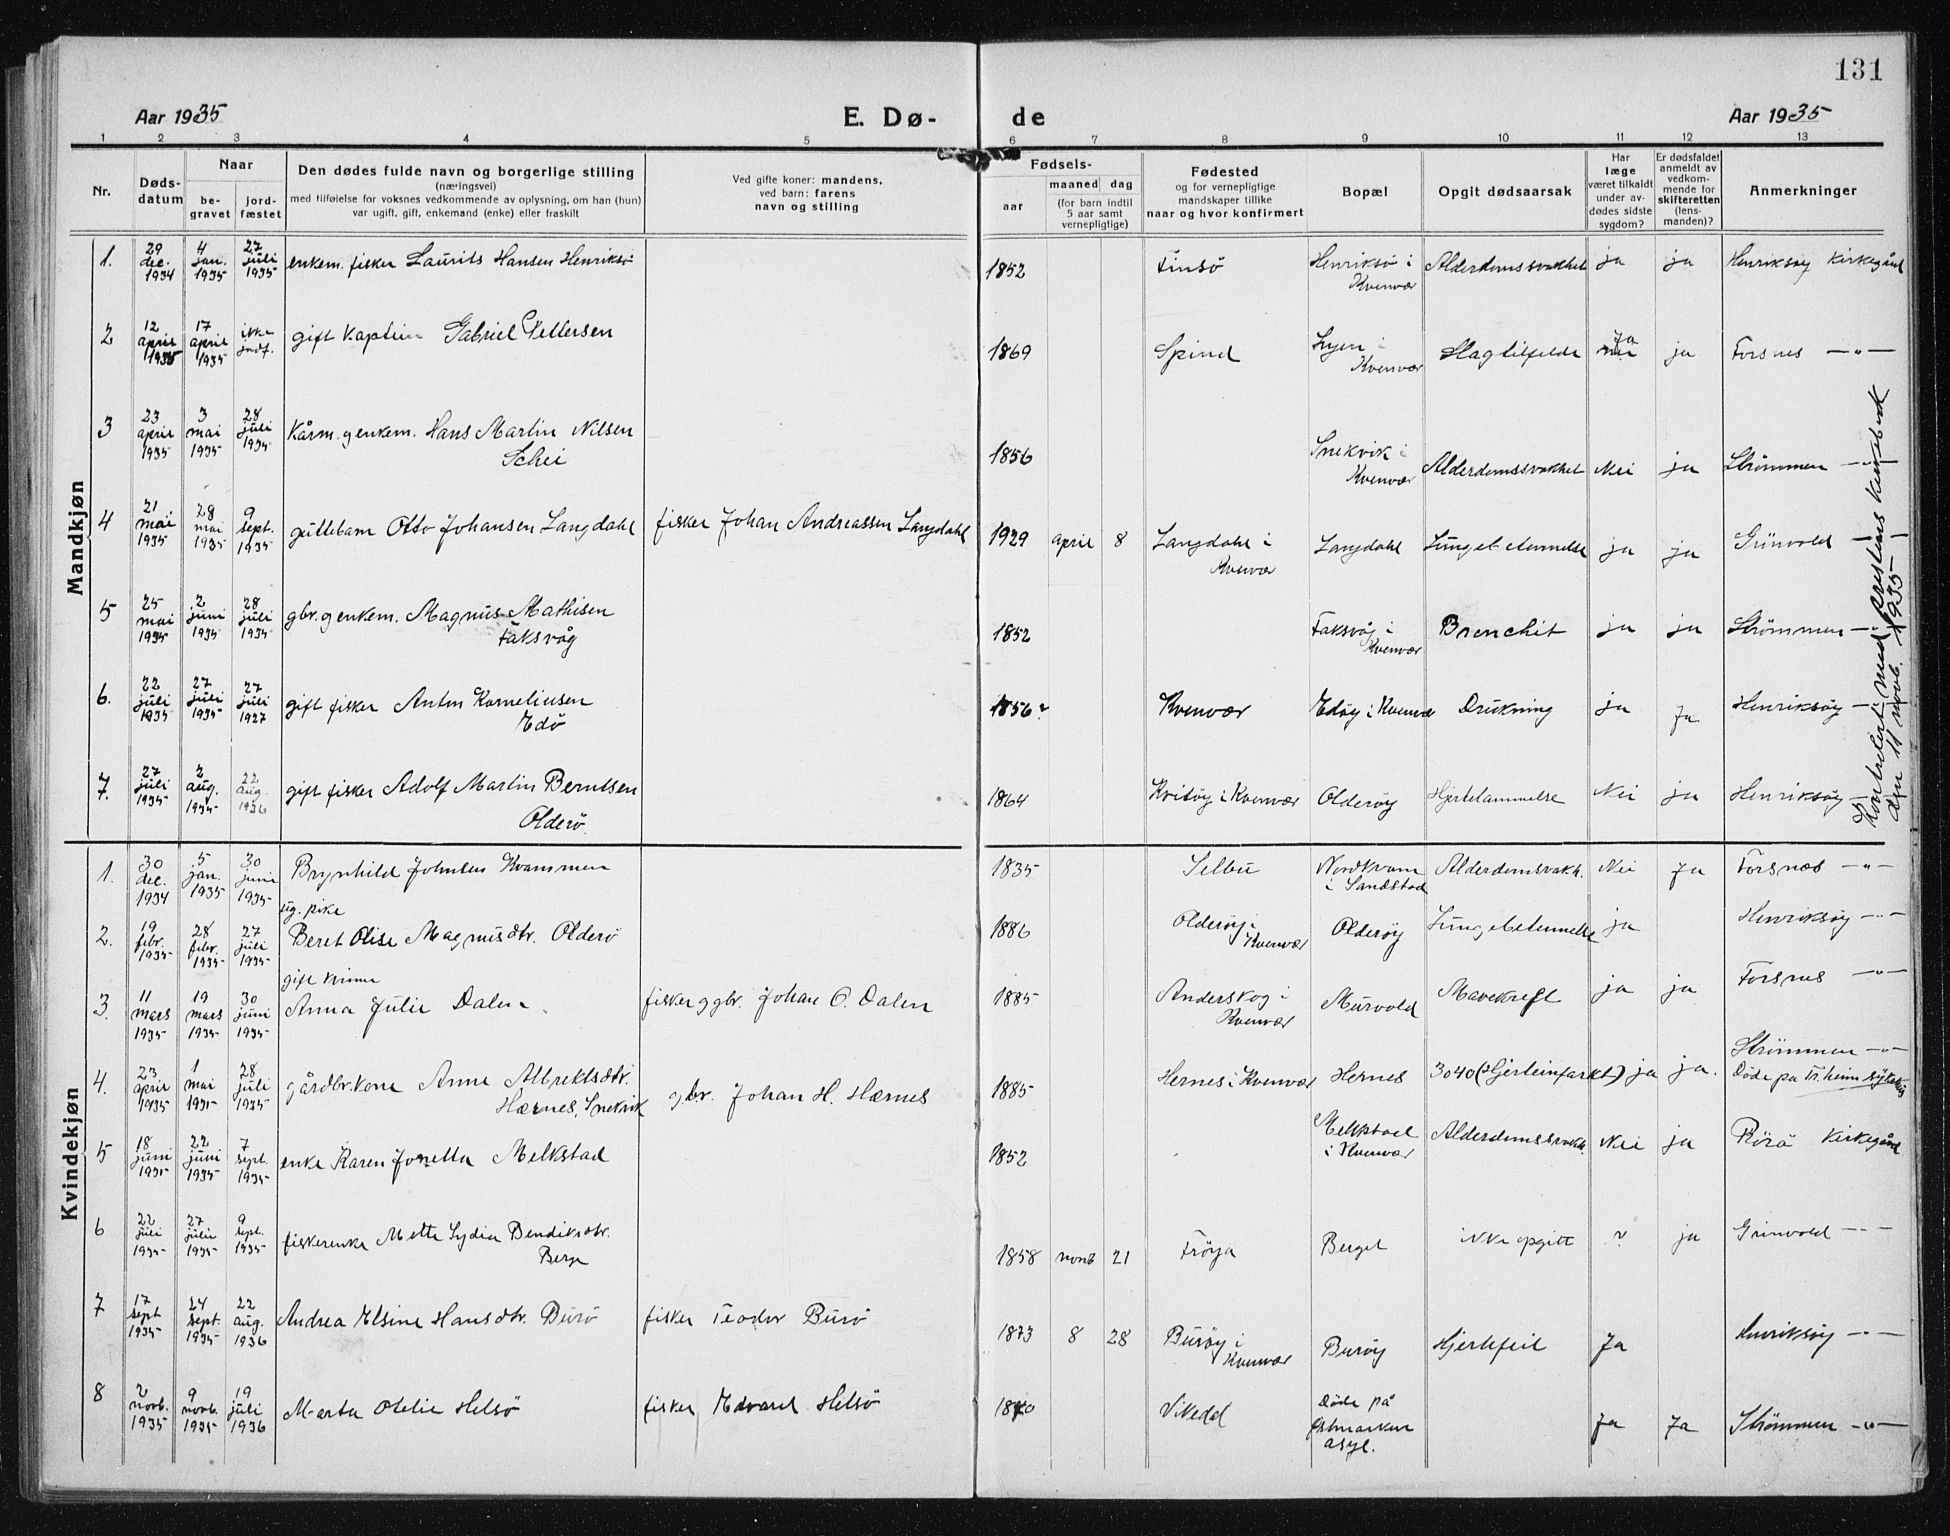 131
Aar 1935 E. Dø- de Aar 1935
1 2 3 4 5 6 7 8 9 10 11 12 13
Nr. Døds-datum Naar be-gravet jord-fæstet Den dødes fulde navn og borgerlige stilling (næringsvei) med tilføielse for voksnes vedkommende av oplysning, om han (hun) var ugift, gift, enkemand (enke) eller fraskilt Ved gifte koner: mandens, ved barn: farens navn og stilling Fødsels- aar maaned dag (for barn indtil 5 aar samt vernepligtige) Fødested og for vernepligtige mandskaper tillike naar og hvor konfirmert Bopæl Opgit dødsaarsak Har læge været tilkaldt under av-dødes sidste sygdom? Er dødsfaldet anmeldt av vedkom-mende for skifteretten (lens-manden)? Anmerkninger
Mandkjøn
1. 29 dec. 1934 4 jan. 1935 27 juli 1935 enkem. fisker Laurits Hansen Henriksø 1852 Tinsö Henriksø i Kvenvær Alderdomssvakhet ja ja Henriksøy Kirkegård
2 12 april 1935 17 april 1935 ikke jordf. gift Kaptein Gabriel Pettersen 1869 Spind i Kvenvær Slagtilfelde Ja nei ja Forsnes -"-
3 23 april 1935 3 mai 1935 28 juli 1935 Kårm. g enkem. Hans Martin Nilsen Schei 1856 Snekvik i Kvenvær Alderdomssvakhet Nei ja Strömmen -"-
4 21 mai 1935 28 mai 1935 9 sept. 1935 guttebarn Otto Johansen Langdahl fisker Johan Andreassen Langdahl 1929 april 8 Langdahl i Kvenvær Langdahl Lungebetennelse ja ja Grünvold
5 25 mai 1935 2 juni 1935 28 juli 1935 gbr. g enkem. Magnus Mathisen Taksvåg 1852 Taksvåg i Kvenvær Bronchit ja ja Strömmen -"-
6. 22 juli 1935 27 juli 1935 27 juli 1927 gift fisker Anton Korneliusen Edø 1856? Kvenvær Edøy i Kvenvær Drukning ja ja Henriksøy -"-
7. 27 juli 1935 2 aug. 1935 22 aug. 1936 gift fisker Adolf Martin Berntsen Olderø 1864 Kvisøy i Kvenvær Olderøy Hjertelammelse Nei ja Henriksøy
den 11 novb. 1935
Kvindekjøn
1. 30 dec. 1934 5 jan. 1935 30 juni 1935 Brynhild Johnsen Kvammen ug. pike 1835 Selbu Nordkvam i Sandstad Alderdomsvakh. Nei Ja Forsnæs -"-
2. 19 febr. 1935 28 febr. 1935 27 juli 1935 Beret Olise Magnusdtr. Olderø gift kvinne 1886 Olderøy i Kvenvær Olderøy Lungebetennelse ja Henriksøy -"-
3. 11 mars 1935 19 mars 1935 30 juni 1935 Anna Julie Dalen fisker g gbr. Johan O. Dalen 1885 Anderskog i Kvenvær Murvold Mavekreft ja ja Forsnes -"-
4. 23 april 1935 1 mai 1935 28 juli 1935 gårdbr. kone Anne Albrektsdtr. Hærnes, Snekvik gbr. Johan H. Hærnes 1885 Hernes i Kvenvær Hernes 3040 (Hjerteinfarkt) ja ja. Strömmen -"- Døde på Tr.heim sykehus
5 18 juni 1935 22 juni 1935 7 sept. 1935 enke Karen Jonetta Melkstad 1852 Melkstad i Kvenvær Alderdomssvakh. Nei ja Rörå Kirkegård
6 22 juli 1935 27 juli 1935 9 sept. 1935 fiskerenke Mette Lydia Bendiksdtr. Berge 1858 novb 21 Frøya Berget ikke opgitt ? ja Grünvold -"-
7 17 sept 1935 24 sept. 1935 22 aug. 1936 Andrea Elsine Hansdtr. Burø fisker Teodor Burø 1873 8 28 Burøy i Kvenvær Burøy Hjertefeil Ja Henriksøy -"-
8 2 novb. 1935 9 novb. 1935 19 juli 1936 Marta Otelie Helsø fisker Edvard Helsø 1870 Vikedd Døde på Østmarken asyl. Ja Ja Strömmen -"-